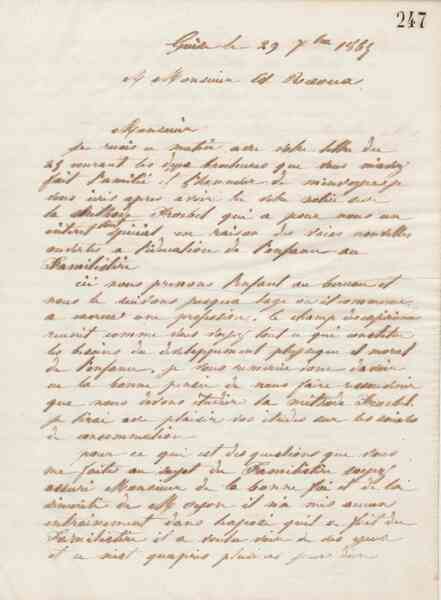 247
Guise le 29 7bre 1865
A Monsieur Ed Raoux
Monsieur
Je reçois ce matin avec votre lettre du
25 courant les deux brochures que vous m'avez
fait l'amitié et l'honneur de m'envoyer, je
vous écris après avoir lu votre notice sur
la Méthode Froebel qui a pour nous un
intérêt tout spécial en raison des voies nouvelles
ouvertes à l'éducation de l'enfance au
Familistère
ici nous prenons l'enfant au berceau et
nous le suivons jusqu'à l'âge où il commence
à exercer une profession, le champ d'expérience
réunit comme vous voyez tout ce qui constitue
les besoins du développement physique et moral
de l'enfance, je vous remercie donc d'avoir
eu la bonne pensée de nous faire
que nous devons étudier la méthode Froebel
je lirai avec plaisir vos études sur les sociétés
de consommation
pour ce qui est des questions que vous
me faites au sujet du Familistère soyez
assuré Monsieur de la bonne foi et de la
sincérité de M Oyon il n'a mis aucun
entraînement dans l'exposé qu'il a fait du
Familistère il a voulu voir de ses yeux
et ce n'est qu'après plusieurs